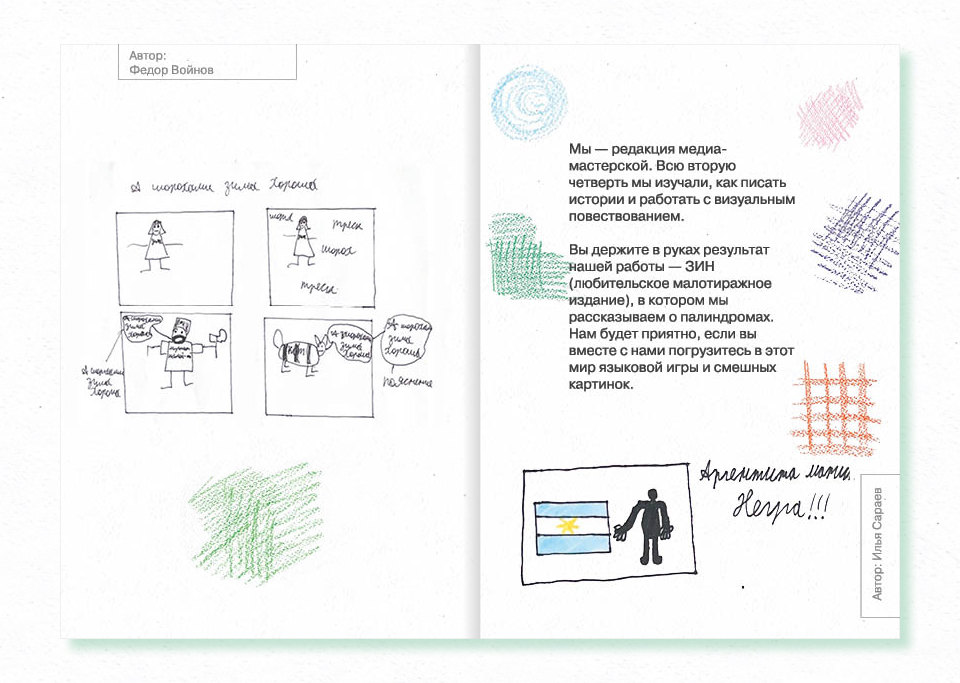 Автор:
Федор Войнов
А шорохами зима хороша
шорох
треск
шорох
треск
А шорохами
зима
хороша
А шорохами
зима
хороша
КОТ
А шорохами
зима
хороша
А шорохам
зима
хороша
пояснение
Мы — редакция медиа-
мастерской. Всю вторую
четверть мы изучали, как писать
истории и работать с визуальным
повествованием.
Вы держите в руках результат
нашей работы — ЗИН
(любительское малотиражное
издание), в котором мы
рассказываем о палиндромах.
Нам будет приятно, если вы
вместе с нами погрузитесь в этот
мир языковой игры и смешных
картинок.
Аргентина манит
Негра!!!
Автор: Илья Сараев